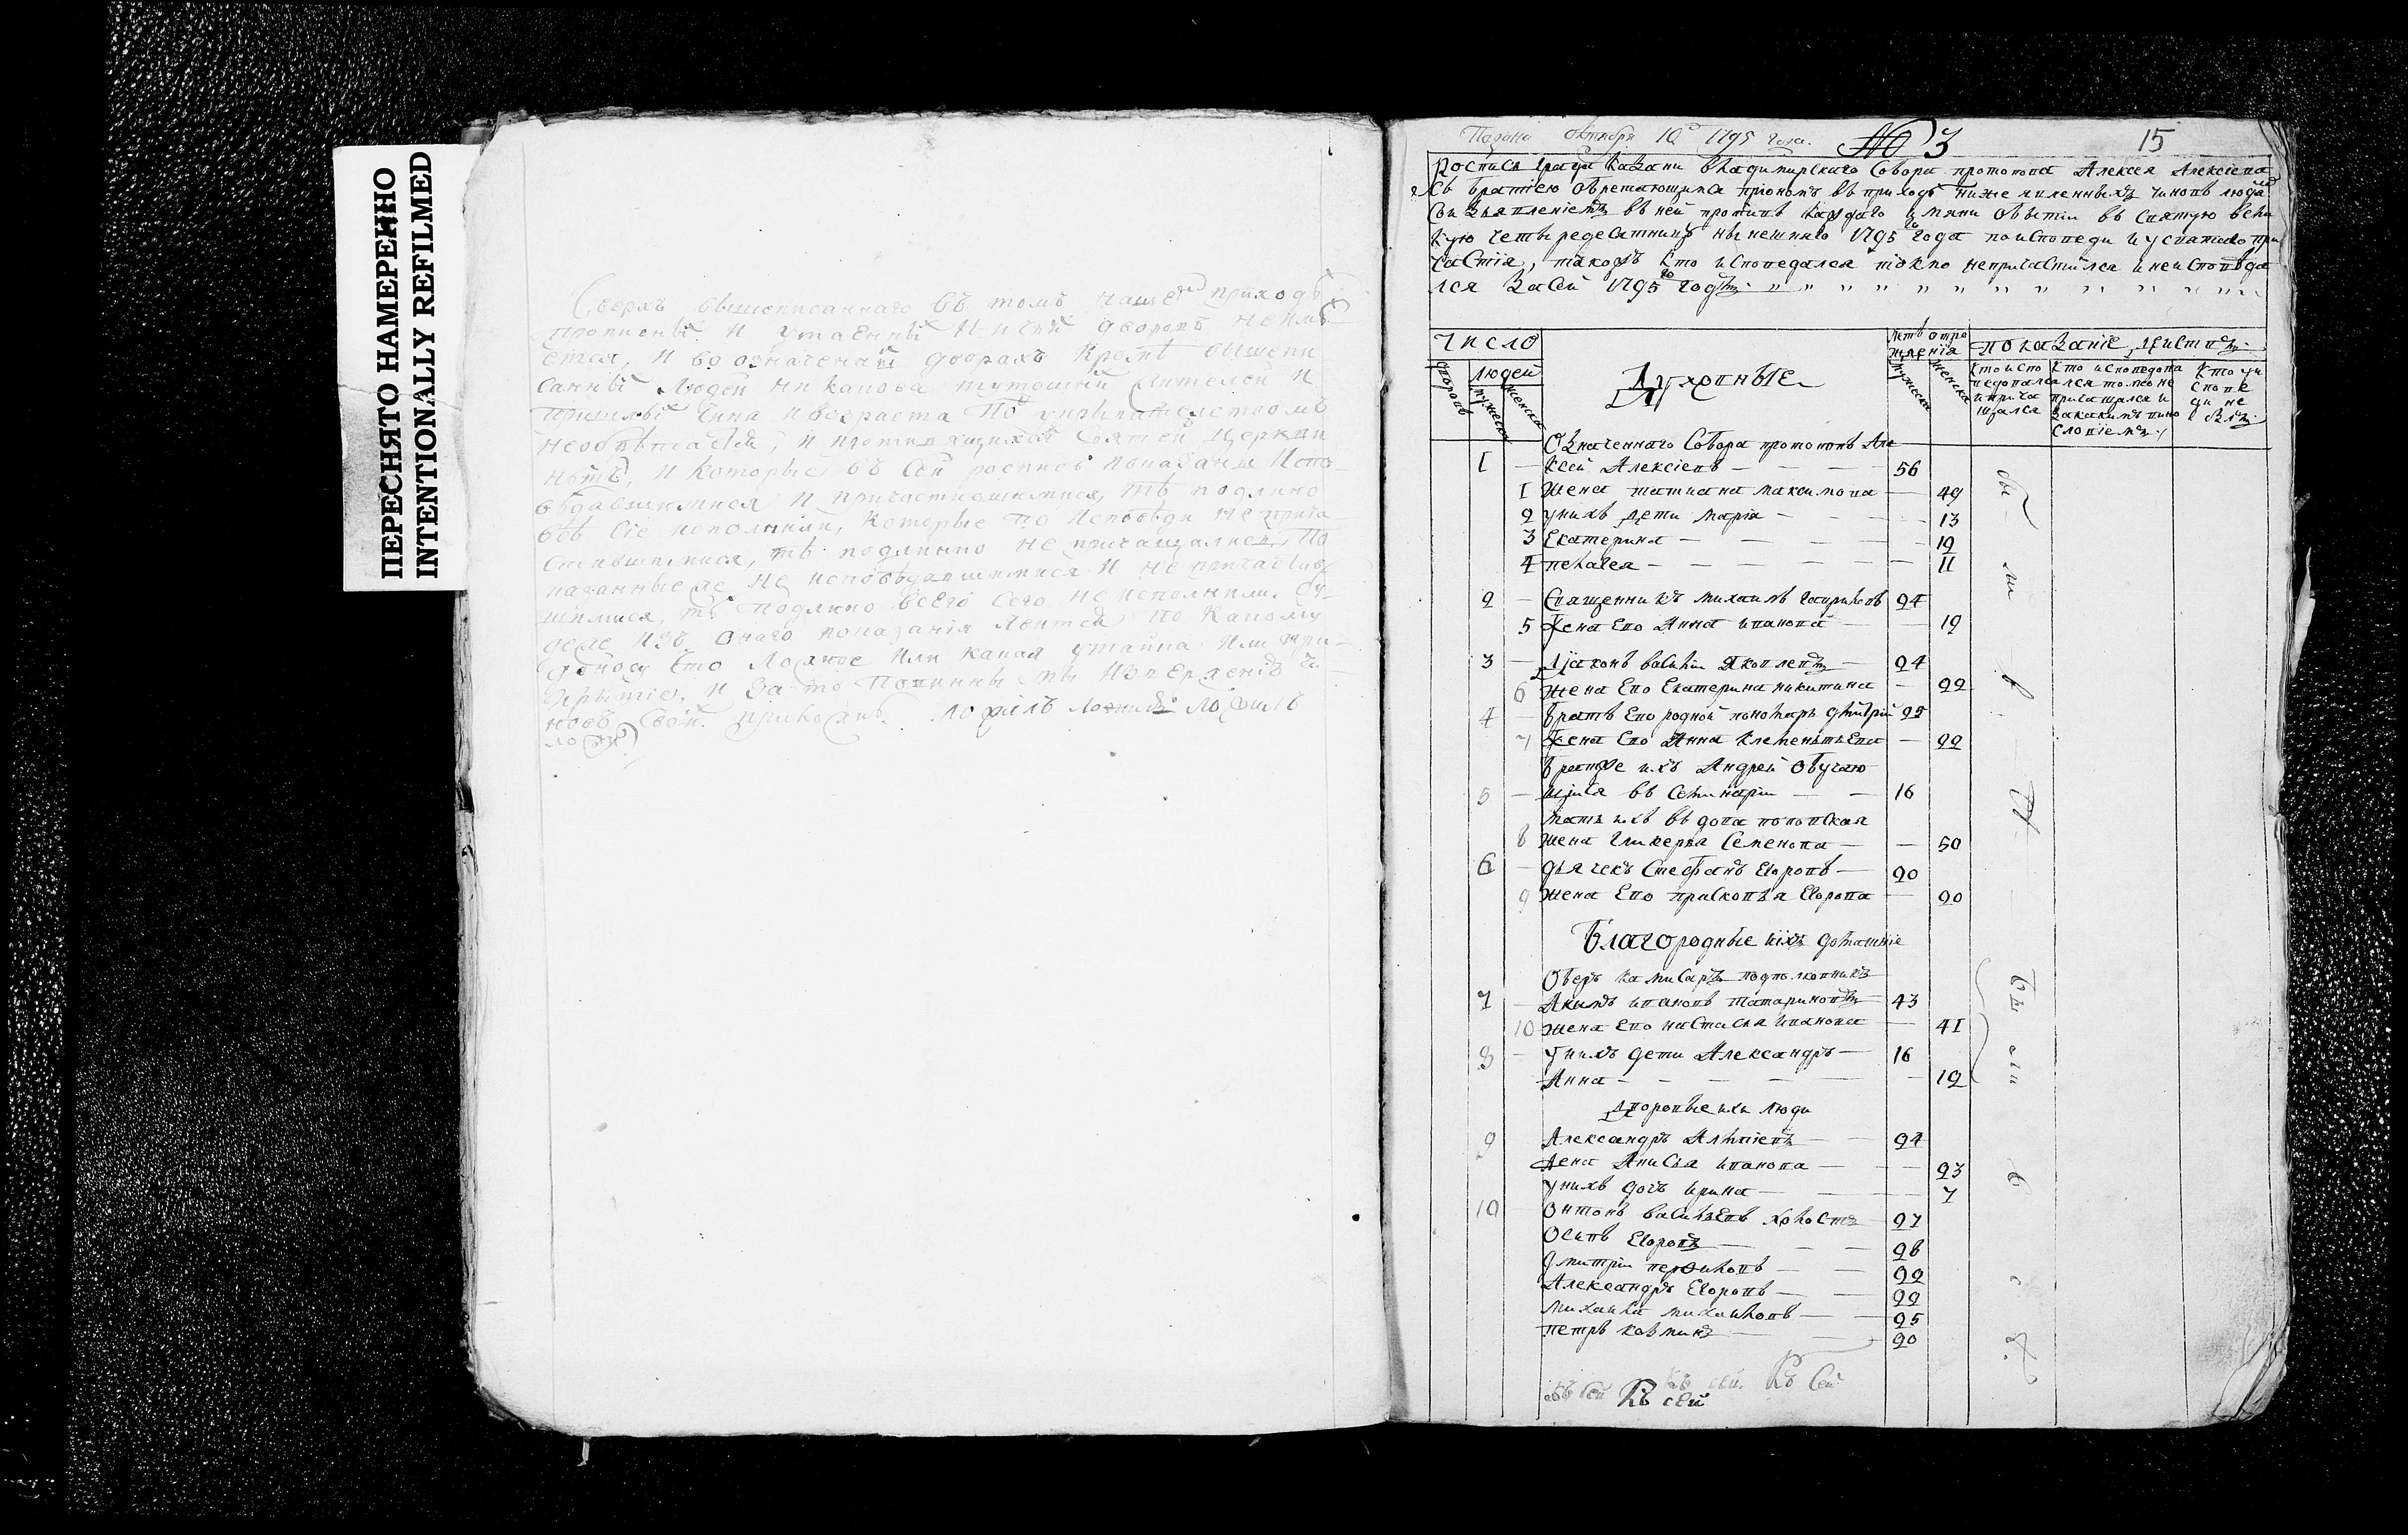 ПЕРЕСНЯТО НАМЕРЕННО
INTENTIONALLY REFILMED
Сверхъ вышеписаннаго въ томъ нашей приходѣ
прописны и утаенны ничьи дворовъ неимѣ
ется, и во означеный дворахъ кромѣ вышепи
санный людей никакова тутошний жителей и
пришлый чина ивозраста
необѣтается, и противящихся святей церкви
нѣтъ, и которые въ сей росписѣ показаны испо
вѣдавшимися и причастившимися, тѣ подлино
всѣ сіе исполнили, которые по исповѣди не прича
стившимися, тѣ подлинно не причащались, по
казанные же не исповѣдавшимися и не причастив
шимися, тѣ подлино всего сего не исполнили. Бу
деже изъ онаго показанія явится, по какому
доносу что ложное или какая утайка или при
крытіе, и за то повинны мы изверженія чи
новъ свой.
Подана октября 10г 1795 года. № 3 15
Роспись града Казани владимирскаго Собора протопопа Алексея Алексіева
съ братіею обретающимся приономъ въ приходѣ нижеявленныхъ чиновъ людей
сизъявленіемъ въ ней противъ каждаго имяни обытіи въ святую вели
кую четыредесятницу нынешняго 1795го года поисповеди и усвятаго при
частія, такожъ кто исповедался токмо непричастился и неисповѣда
лся Засей 1795го годъ
число
дворовъ
людей
мужеска
женска
Духовные
летъ отро
жденія
мужеска
женска
показаніе дѣйствъ
кто испо
ведовался
и прича
щался
кто исповедова
лся токмо не
причащался и
закакимъ вино
словіемъ
кто и и
спове
ди не
былъ
Означеннаго Собора протопопъ Але
1 — ксей Алексіевъ — 56
1 жена татиана максимова — 49
2 унихъ дети Марія — 13
3 Екатерина — 12
4 пелагея — 11
2 — Священникъ михаилъ гавриловъ 24
5 жена Ево Анна иванова — 19
3 — Діаконъ василіи Яковлевъ — 24
6 жена Ево Екатерина никитина — 22
4 — братъ Ево родной пономарь дмитрій 25
7 жена Ево Анна клементьева — 22
братже ихъ Андрей обучаю
5 — щійся въ Семинаріи — 16
мать ихъ вдова поповская
8 жена гликерья Семенова — 50
6 — дьячекъ Стефанъ Егоровъ — 20
9 жена Ево прасковья Егорова — 20
Благородные иихъ домашніе
Оберъ камисаръ подполковникъ
7 — Акимъ ивановъ татариновъ — 43
10 жена Ево настасья иванова — 41
8 — унихъ дети Александръ — 16
Анна — 12
Дворовые ихъ люди
9 Александръ — 24
жена Анисья иванова — 23
унихъ дочь ирина — 7
10 Онтонъ васильевъ холостъ — 27
Осипъ Егоровъ — 26
дмитріи перфиловъ — 22
Александръ Егоровъ — 22
михайла михайловъ — 25
петръ козминъ — 20
Къ сей
Къ сей